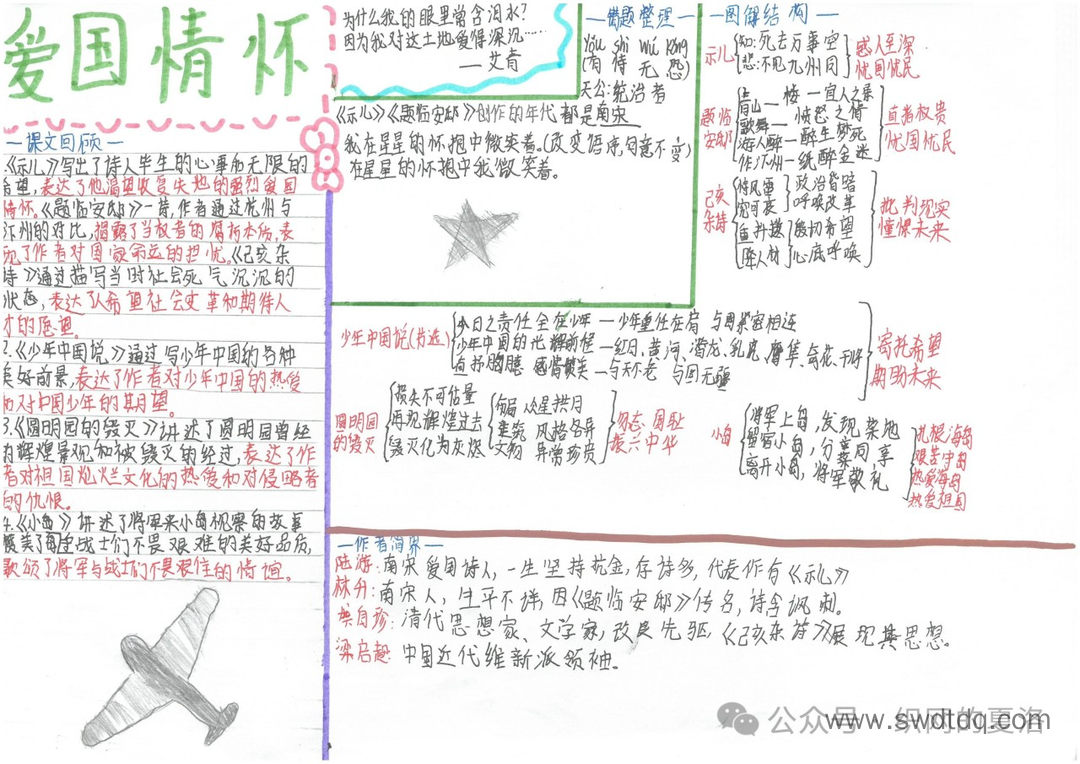 爱国情怀
一课文回顾一
《示儿》写出了诗人毕生的心事和无限的
希望,表达了他渴望收复失地的强烈爱国
情怀。《题临安邸》一诗,作者通过杭州与
汴州的对比,揭露了当权者的腐朽本质,表
现了作者对国家命运的担忧。《己亥杂
诗》通过描写当时社会死气沉沉的
状态,表达了人希望社会变革和期待人
才的愿望。
2.《少年中国说》通过写少年中国的各种
美好前景,表达了作者对少年中国的热爱
和对中国少年的期望。
3.《圆明园的毁灭》讲述了圆明园曾经
的辉煌景观和被毁灭的经过,表达了作
者对祖国灿烂文化的热爱和对侵略者
的仇恨。
4.《小岛》讲述了将军来小岛视察的故事
赞美了海岛战士们不畏艰难的美好品质,
歌颂了将军与战士们不畏艰住的情谊。
为什么我的眼里常含泪水?
因为我对这土地爱得深沉……
—艾青
《示儿》《题临安邸》创作的年代都是南宋
我在星星的怀抱中微笑着。(改变语序,句意不变)
在星星的怀抱中我微笑着。
一错题整理一
yǒu shì wú kǒng
(有恃无恐)
天公:统治者
一图解结构一
示儿
知:死去万事空
悲:不见九州同
感人至深
忧国忧民
题临
安邸
青山—楼—宜人之景
歌舞—愤怒之情
游人醉—醉生梦死
作汴州—纸醉金迷
直指权贵
忧国忧民
己亥
杂诗
恃风雷 政治昏暗
究可哀 呼唤改革
重抖擞 殷切希望
降人材 心底呼唤
批判现实
憧憬未来
少年中国说(节选)
今日之责任全在少年—少年重任在肩 与国家紧密相连
少年中国的光辉前程—红日、黄河、潜龙、乳虎、鹰隼、奇花、干将
直抒胸臆 感情赞美—与天不老 与国无疆
寄托希望
期盼未来
圆明园
的毁灭
损失不可估量
再现辉煌过去
毁灭化为灰烬
布局 众星拱月
建筑 风格各异
文物 异常珍贵
勿忘国耻
振兴中华
小岛
将军上岛,发现菜地
留宿小岛,分菜同享
离开小岛,将军敬礼
扎根海岛
艰苦守岛
热爱海岛
热爱祖国
一作者简界一
陆游:南宋爱国诗人,一生坚持抗金,存诗多,代表作有《示儿》
林升:南宋人,生平不详,因《题临安邸》传名,诗含讽刺。
龚自珍:清代思想家、文学家,改良先驱,《己亥杂诗》展现其思想。
梁启超:中国近代维新派领袖。
公众号·织网的夏洛
www.swdtdq.com